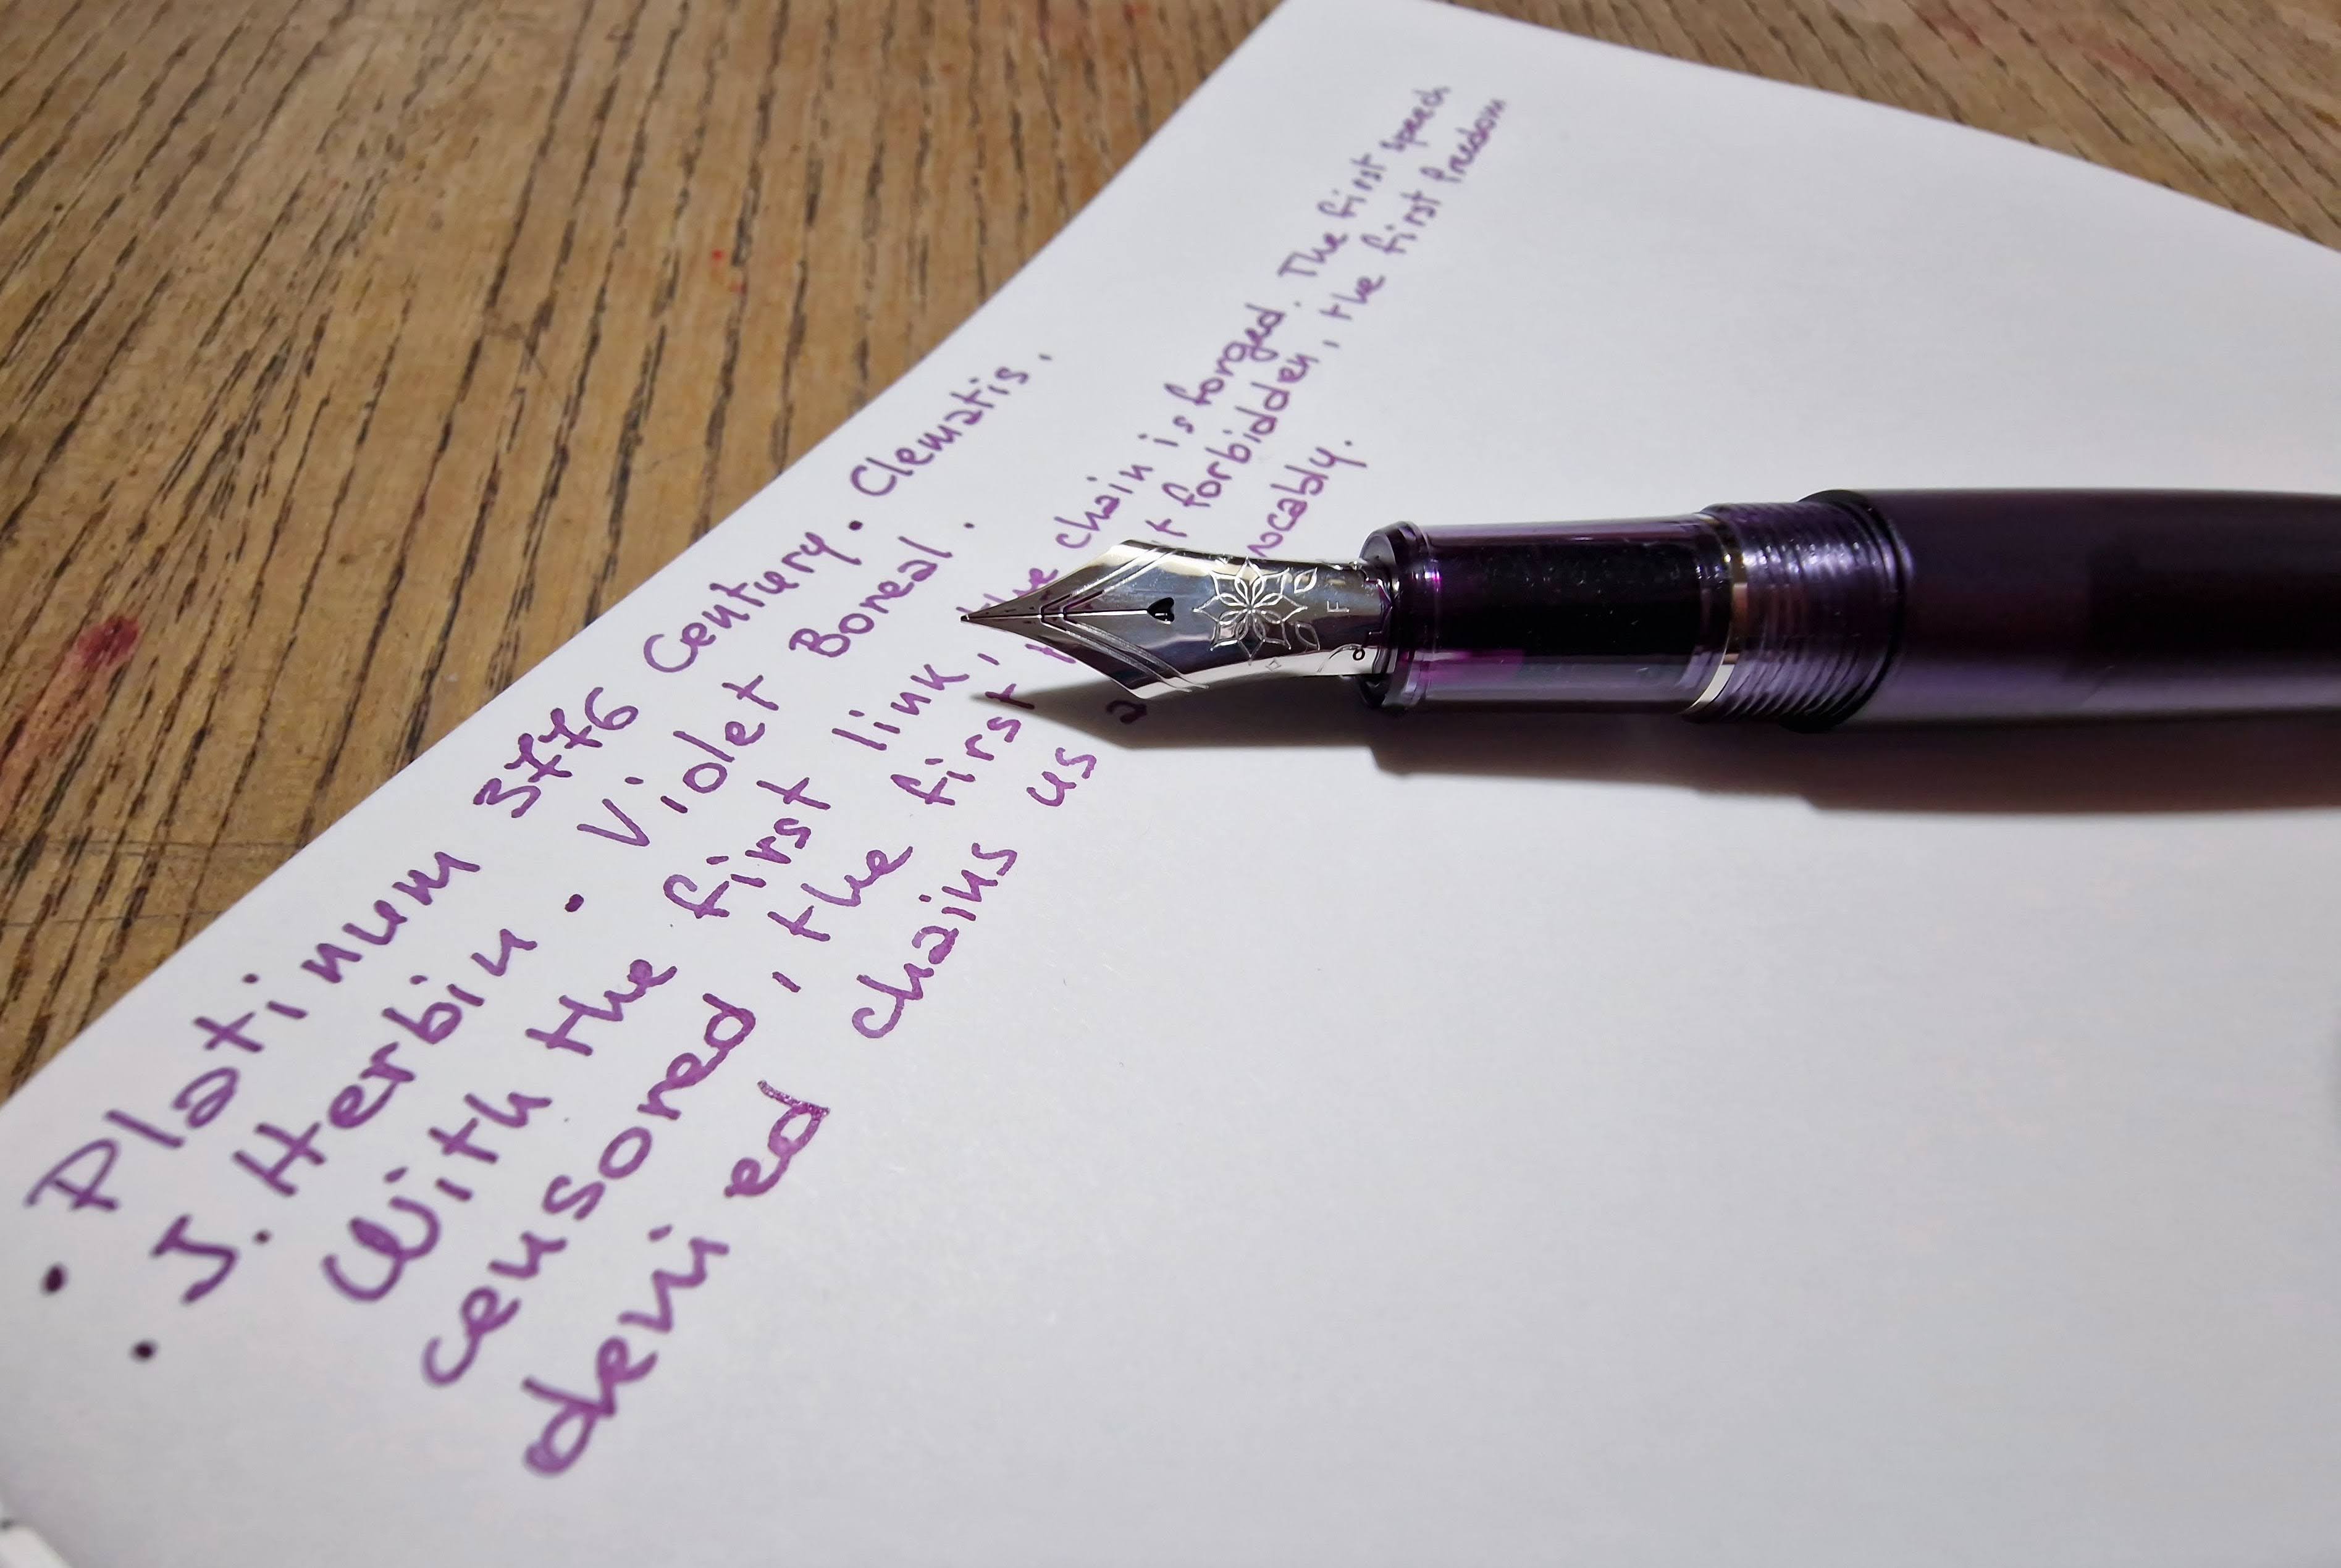 • Platinum 3776 Century • Clematis.
• J. Herbin • Violet Boreal.
With the first link, the chain is forged. The first speech
censored, the first forbidden, the first freedom
denied chains us
F